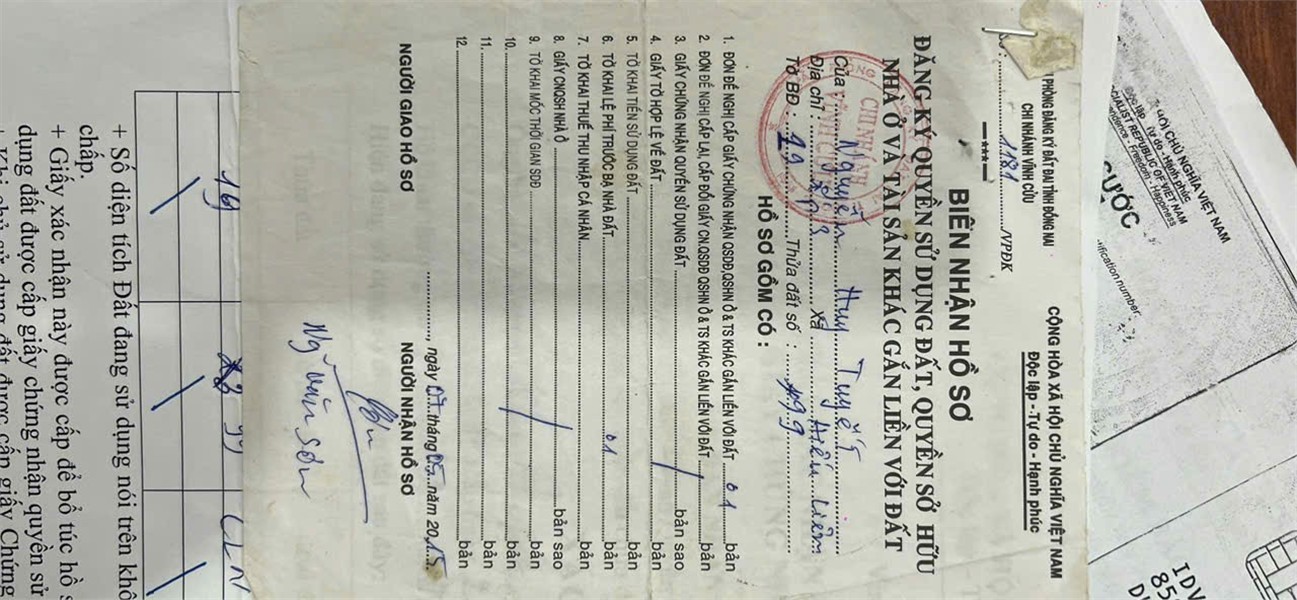 PHÒNG ĐĂNG KÝ ĐẤT ĐAI TỈNH ĐỒNG NAI
CHI NHÁNH VĨNH CỬU
1181 /VPĐK
CỘNG HÒA XÃ HỘI CHỦ NGHĨA VIỆT NAM
Độc lập - Tự do - Hạnh phúc
BIÊN NHẬN HỒ SƠ
ĐĂNG KÝ QUYỀN SỬ DỤNG ĐẤT, QUYỀN SỞ HỮU
NHÀ Ở VÀ TÀI SẢN KHÁC GẮN LIỀN VỚI ĐẤT
Của Nguyễn Huy Tuyết
Địa chỉ : xã Hiếu Liêm
Tờ BĐ : 19 Thửa đất số : 199
CHI NHÁNH
HỒ SƠ GỒM CÓ :
1. ĐƠN ĐỀ NGHỊ CẤP GIẤY CHỨNG NHẬN QSDĐ,QSHN Ở & TS KHÁC GẮN LIỀN VỚI ĐẤT 01 bản
2. ĐƠN ĐỀ NGHỊ CẤP LẠI, CẤP ĐỔI GIẤY CN.QSDĐ QSHN Ở & TS KHÁC GẮN LIỀN VỚI ĐẤT bản
3. GIẤY CHỨNG NHẬN QUYỀN SỬ DỤNG ĐẤT bản sao
4. GIẤY TỜ HỢP LỆ VỀ ĐẤT bản
5. TỜ KHAI TIỀN SỬ DỤNG ĐẤT bản
6. TỜ KHAI LỆ PHÍ TRƯỚC BẠ NHÀ ĐẤT 01 bản
7. TỜ KHAI THUẾ THU NHẬP CÁ NHÂN bản
8. GIẤY CNQSH NHÀ Ở bản sao
9. TỜ KHAI MỐC THỜI GIAN SDĐ bản
10. bản
11. bản
12. bản
ngày 07 tháng 05 năm 2015
NGƯỜI GIAO HỒ SƠ
NGƯỜI NHẬN HỒ SƠ
Ng văn Sơn
HỘI CHỦ NGHĨA VIỆT NAM
Độc lập - Tự do - Hạnh phúc
SOCIALIST REPUBLIC OF VIET NAM
Independence - Freedom - Happiness
CƯỚC
number
IDV
85
169
CLN
+ Số diện tích Đất đang sử dụng nói trên khô
chấp.
+ Giấy xác nhận này được cấp để bổ túc hồ s
dụng đất được cấp giấy chứng nhận quyền sử
+ Khi chủ sử dụng đất được cấp giấy Chứng